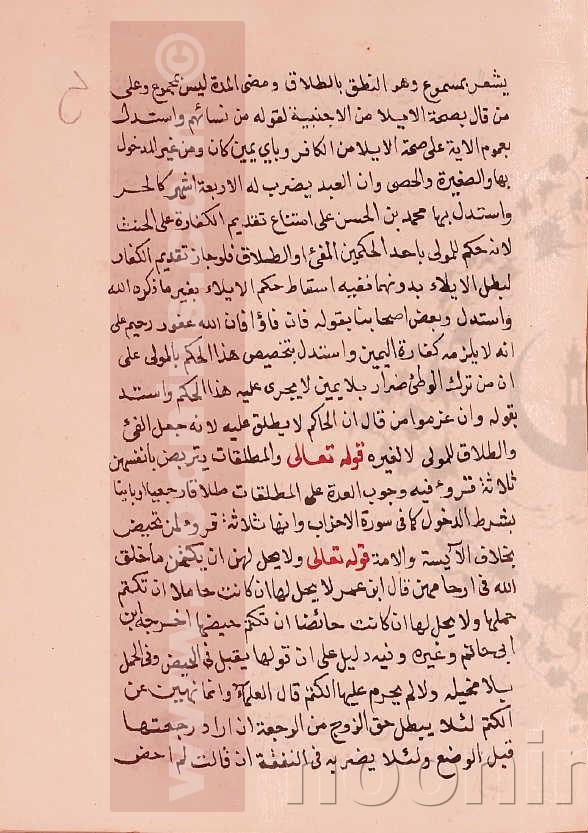 يشعر بمسموع وهو النطق بالطلاق ومضى المدة ليس بمسموع وعلى
من قال بصحة الايلا من الاجنبية لقوله من نسائهم واستدل
بعموم الاية على صحة الايلا من الكافر وباي يمين كان ومن غير المدخول
بها والصغيرة والخصى وان العبد يضرب له الاربعة اشهر كالحر
واستدل بها محمد بن الحسن على امتناع تقديم الكفارة على الحنث
لانه حكم للمولى باحد الحكمين الفئ او الطلاق فلو جاز تقديم الكفارة
لبطل الايلاء بدونهما ففيه اسقاط حكم الايلاء بغير ما ذكره الله
واستدل وبعض اصحابنا بقوله فان فاؤا فان الله غفور رحيم على
انه لا يلزمه كفارة اليمين واستدل بتخصيص هذا الحكم بالمولى على
ان من ترك الوطئ ضرار بلا يمين لا يجرى عليه هذا الحكم واستند
بقوله وان عزموا من قال ان الحاكم لا يطلق عليه لانه جعل الفئ
والطلاق للمولى لا لغيره قوله تعالى والمطلقات يتربصن بانفسهن
ثلاثة قروء فيه وجوب العدة على المطلقات طلاقا رجعيا او باينا
بشرط الدخول كما فى سورة الاحزاب وانها ثلاثة قروء لمن تحيض
بخلاف الآيسة والامة قوله تعالى ولا يحل لهن ان يكتمن ما خلق
الله فى ارحامهن قال ابن عمر لا يحل لها ان كانت حاملا ان تكتم
حملها ولا يحل لها ان كانت حائضا ان تكتم حيضها اخرجه ابن
ابى حاتم وغيره وفيه دليل على ان قولها يقبل فى الحيض وفى الحمل
بلا مخيله ولا لم يحرم عليها الكتم قال العلماء وانما نهيين عن
الكتم لئلا يبطل حق الزوج من الرجعة ان اراد رجعتها
قبل الوضع ولئلا يضر به فى النفقة ان قالت لم احض
www.noorlib
noorlib